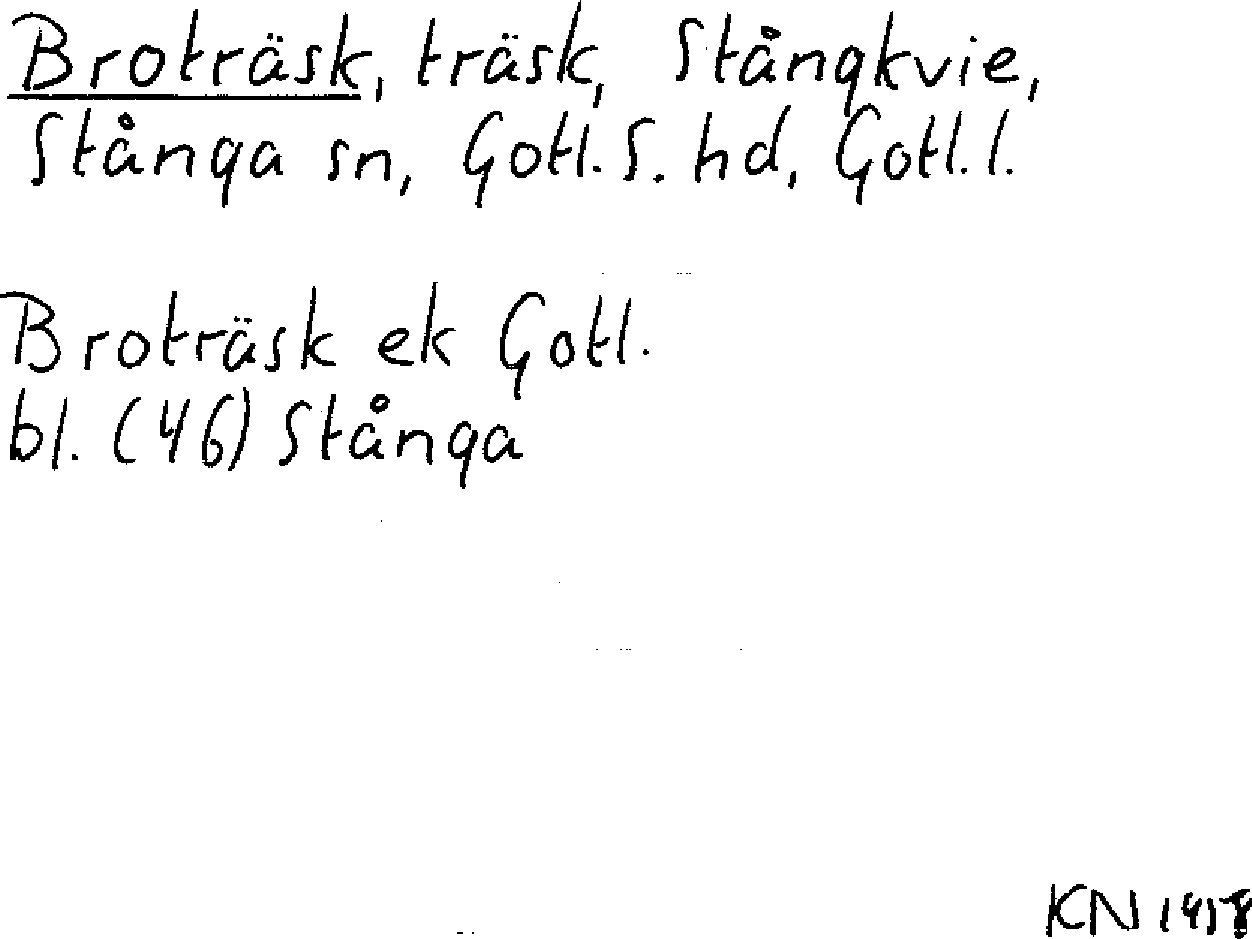 Broträsk, träsk, Stångkvie,
Stånga sn, Gotl. S. hd, Gotl. l.
Broträsk ek Gotl.
bl. (46) Stånga
KN